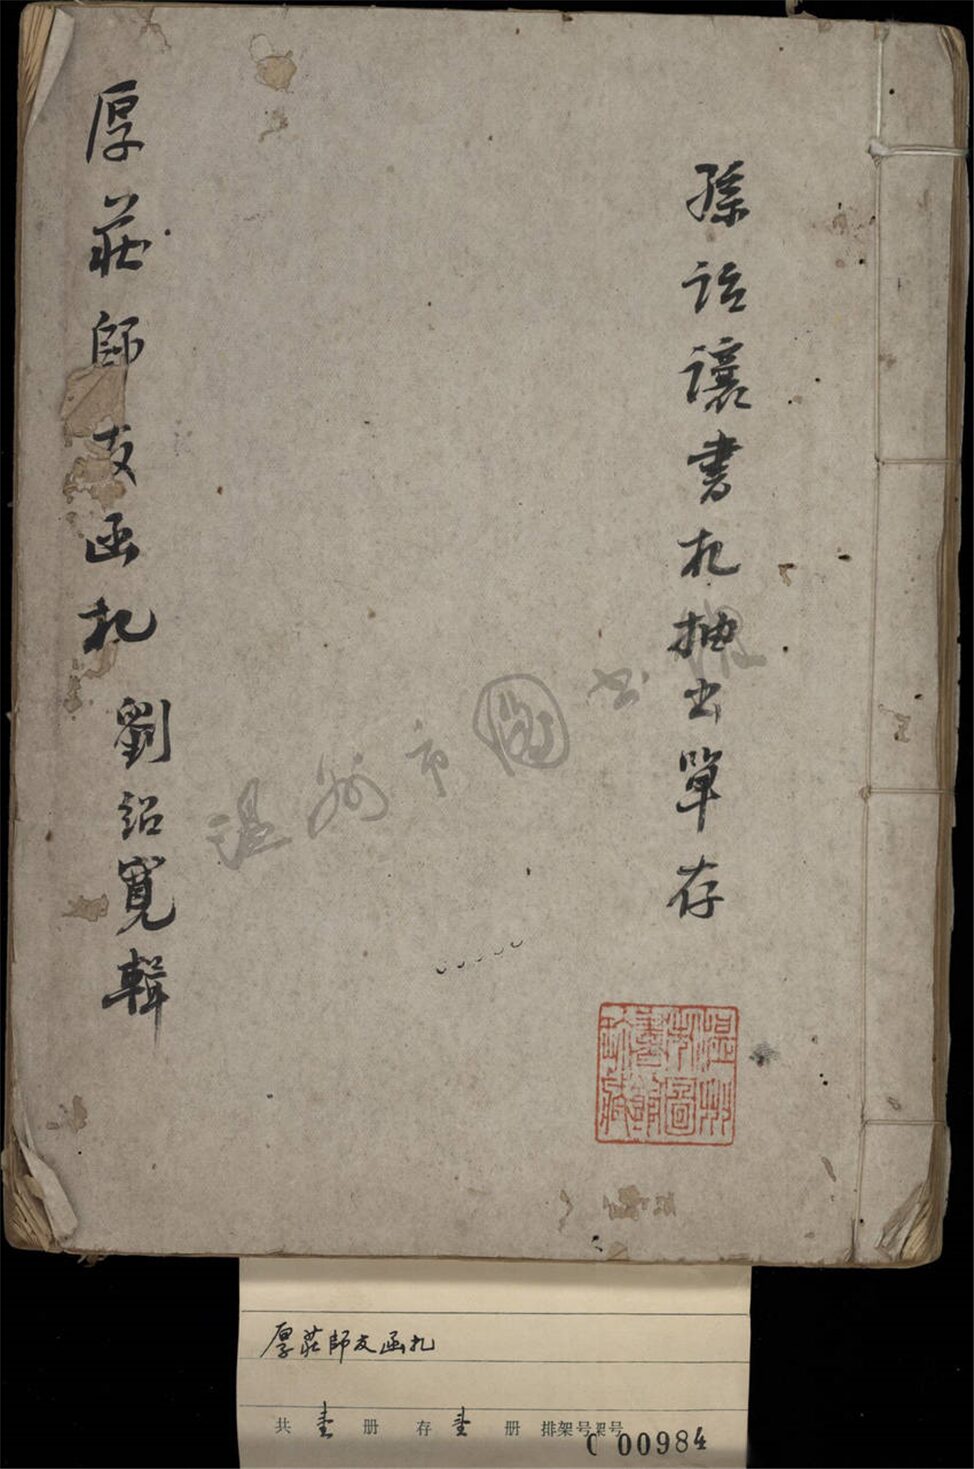 孫詒讓書札抽出單存
厚莊師友函札
劉紹寬輯
温州市圖書館
温州市圖書館珍藏
厚莊師友函札
共 壹 册 存 壹 册 排架号架号
C 00984